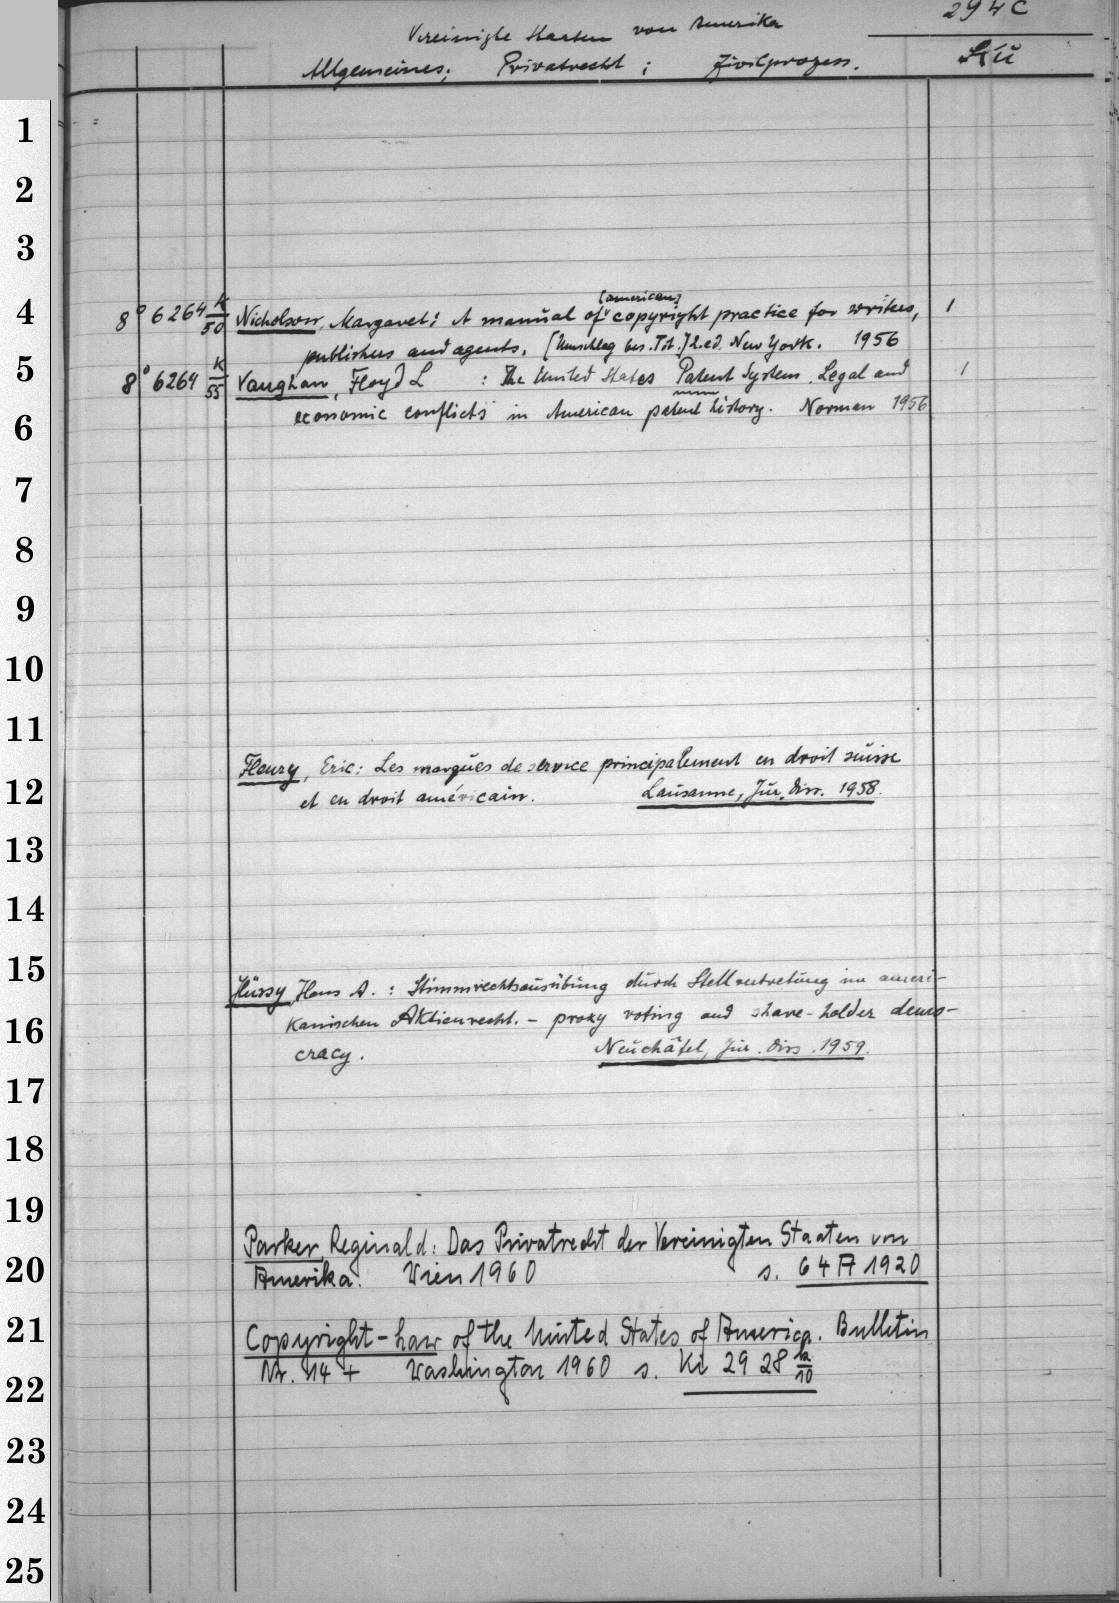 294 C
Vereinigte Staaten von Amerika
Kü
Allgemeines; Privatrecht; Zivilprozess.
1
2
3
[american]
4 8° 6264 K/50 Nicholson, Margaret: A manual of copyright practice for writers, 1
publishers and agents. [Umschlag bes. Tit.] 2. ed. New York. 1956
5 8° 6264 K/55 Vaughan, Floyd L : The United States Patent System. Legal and 1
6 economic conflicts in American patent history. Norman 1956
7
8
9
10
11
Fleury, Eric: Les marques de service principalement en droit suisse
12 et en droit américain. Lausanne, Jur. Diss. 1958.
13
14
15
Hüssy Hans A. : Stimmrechtsausübung durch Stellvertretung im ameri-
16 kanischen Aktienrecht. - proxy voting and share-holder demo-
cracy. Neuchâtel, Jur. Diss. 1959.
17
18
19
Parker, Reginald: Das Privatrecht der Vereinigten Staaten von
20 Amerika. Wien 1960 s. 64 A 1920
21 Copyright-Law of the United States of America. Bulletin
22 Nr. 14 + Washington 1960 s. Ki 2928 k/10
23
24
25